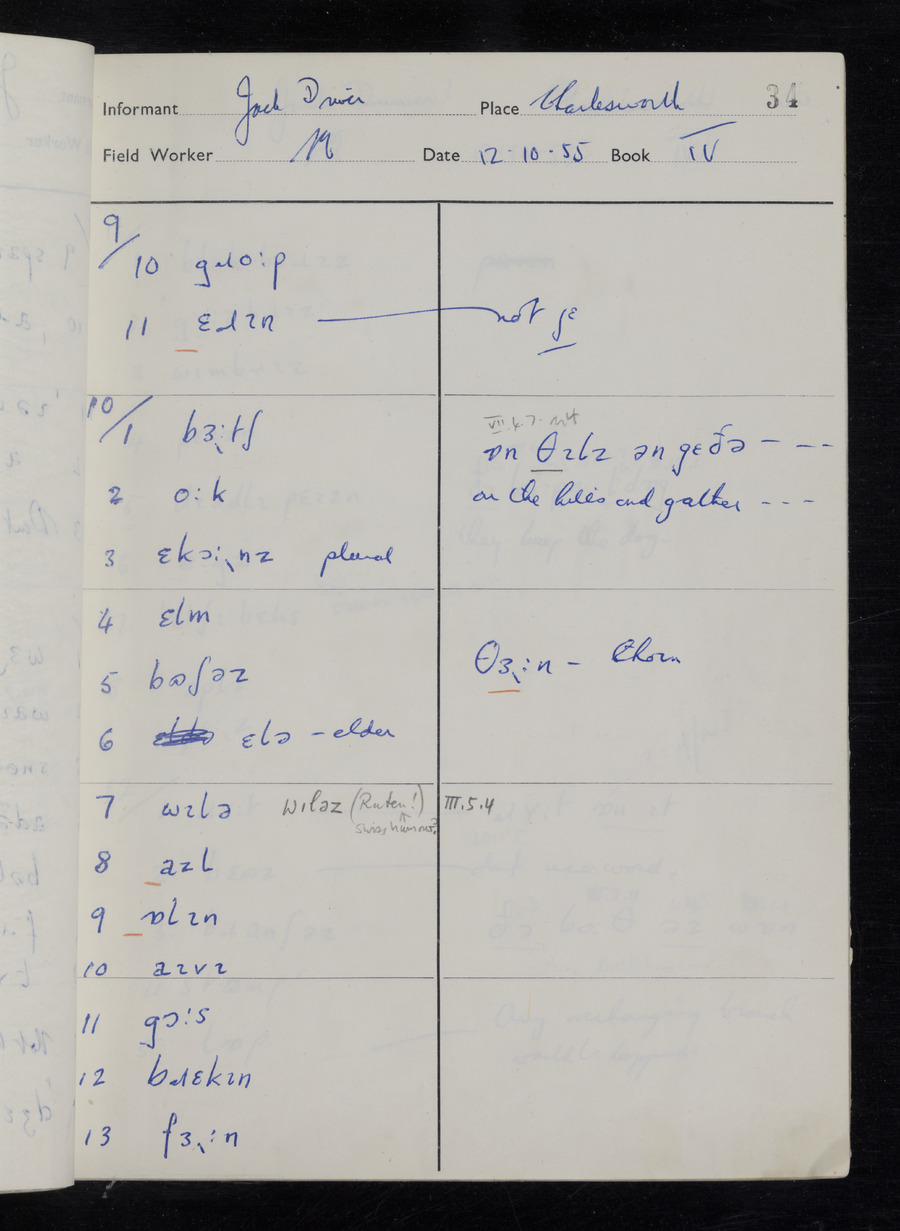 Informant Jack Driver Place Charlesworth 34
Field Worker Date 12-10-55 Book IV
9/
10 gɹoːp
11 ɛɹɪn — not jɛ
10/
VII.4.7. not
1 bɜ˞ːtʃ ɒn θɪlz ən gɛðə – – – –
2 oːk on the hills and gather – – –
3 ɛkɔ˞ːnz plural
4 ɛlm
5 bʊʃəz θɜ˞ːn – thorn
6 ɛlə – elder
7 wɪlə wıləz (Ruten!) III.5.4
↑
swiss humour?
8 aɪl
9 ɒlɪn
10 aɪvɪ
11 gɔːs
12 bɹɛkɪn
13 fɜ˞ːn